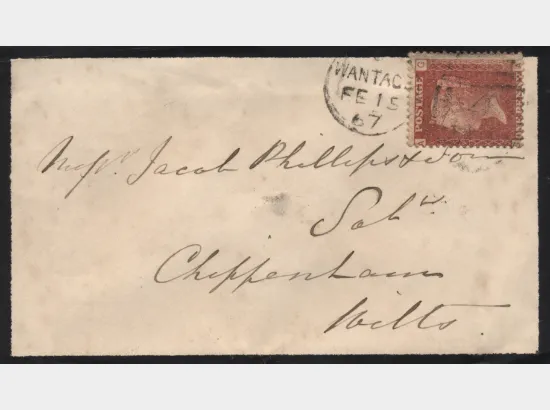 WANTAG
FE 15
67
POSTAGE
Messrs. Jacob Phillips & Sons
Solrs.
Chippenham
Wilts.